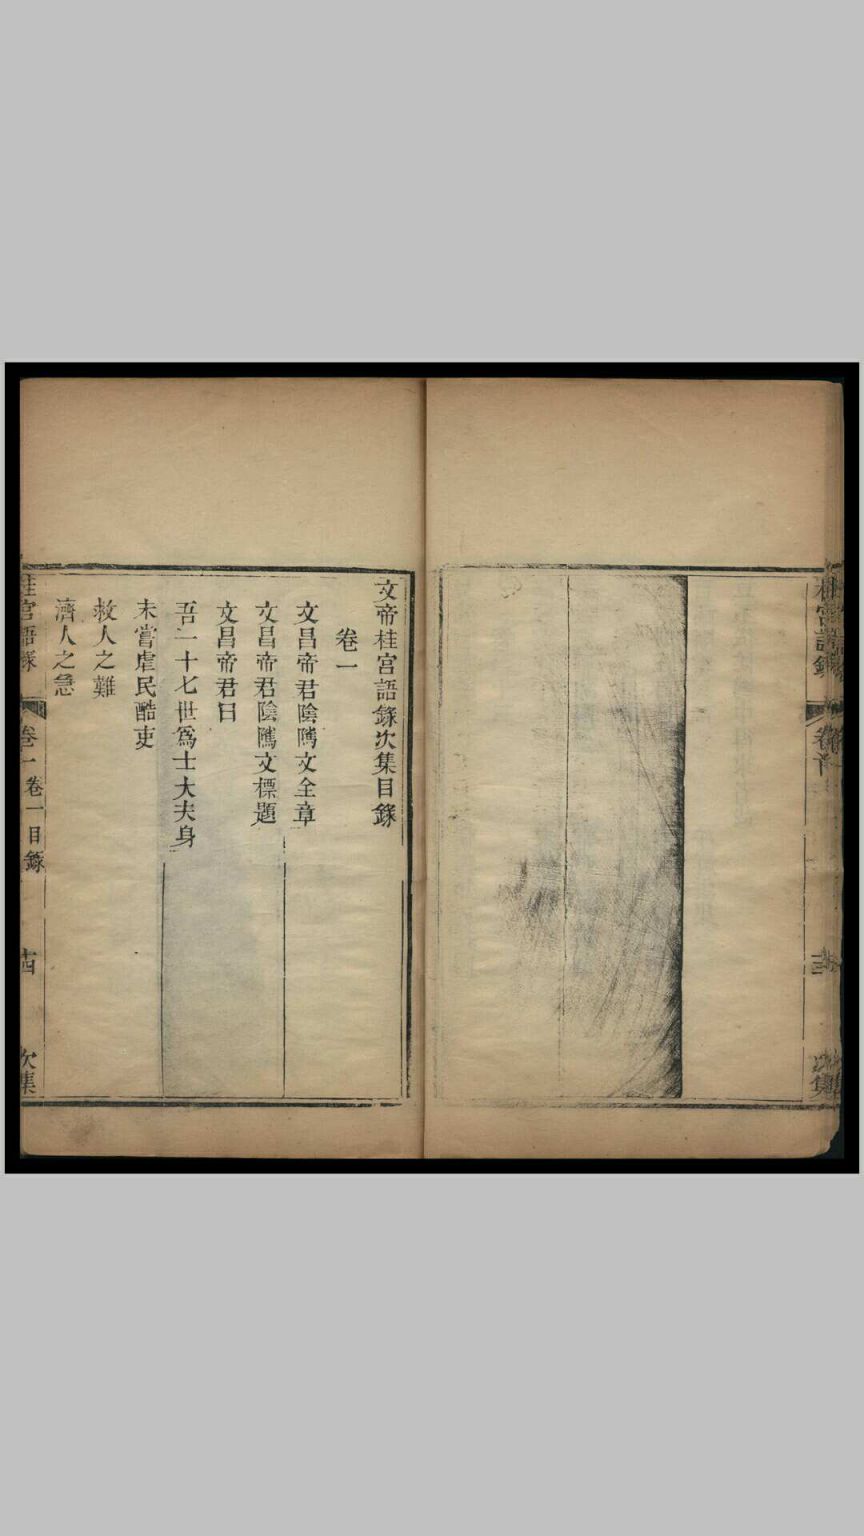 桂宮語錄
卷首
次集
文帝桂宮語錄次集目錄
卷一
文昌帝君陰隲文全章
文昌帝君陰隲文標題
文昌帝君曰
吾一十七世爲士大夫身
未嘗虐民酷吏
救人之難
濟人之急
桂宮語錄
卷一
卷一目錄
十四
次集